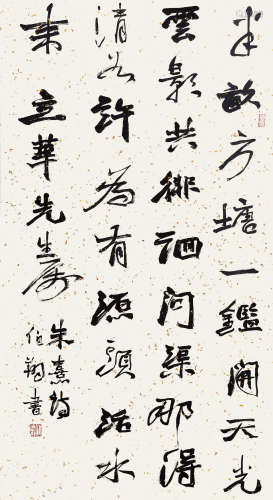 半畝方塘一鑑開天光
雲影共徘徊問渠那得
清如許為有源頭活水
來 立華先生屬
朱熹詩
伯翔書